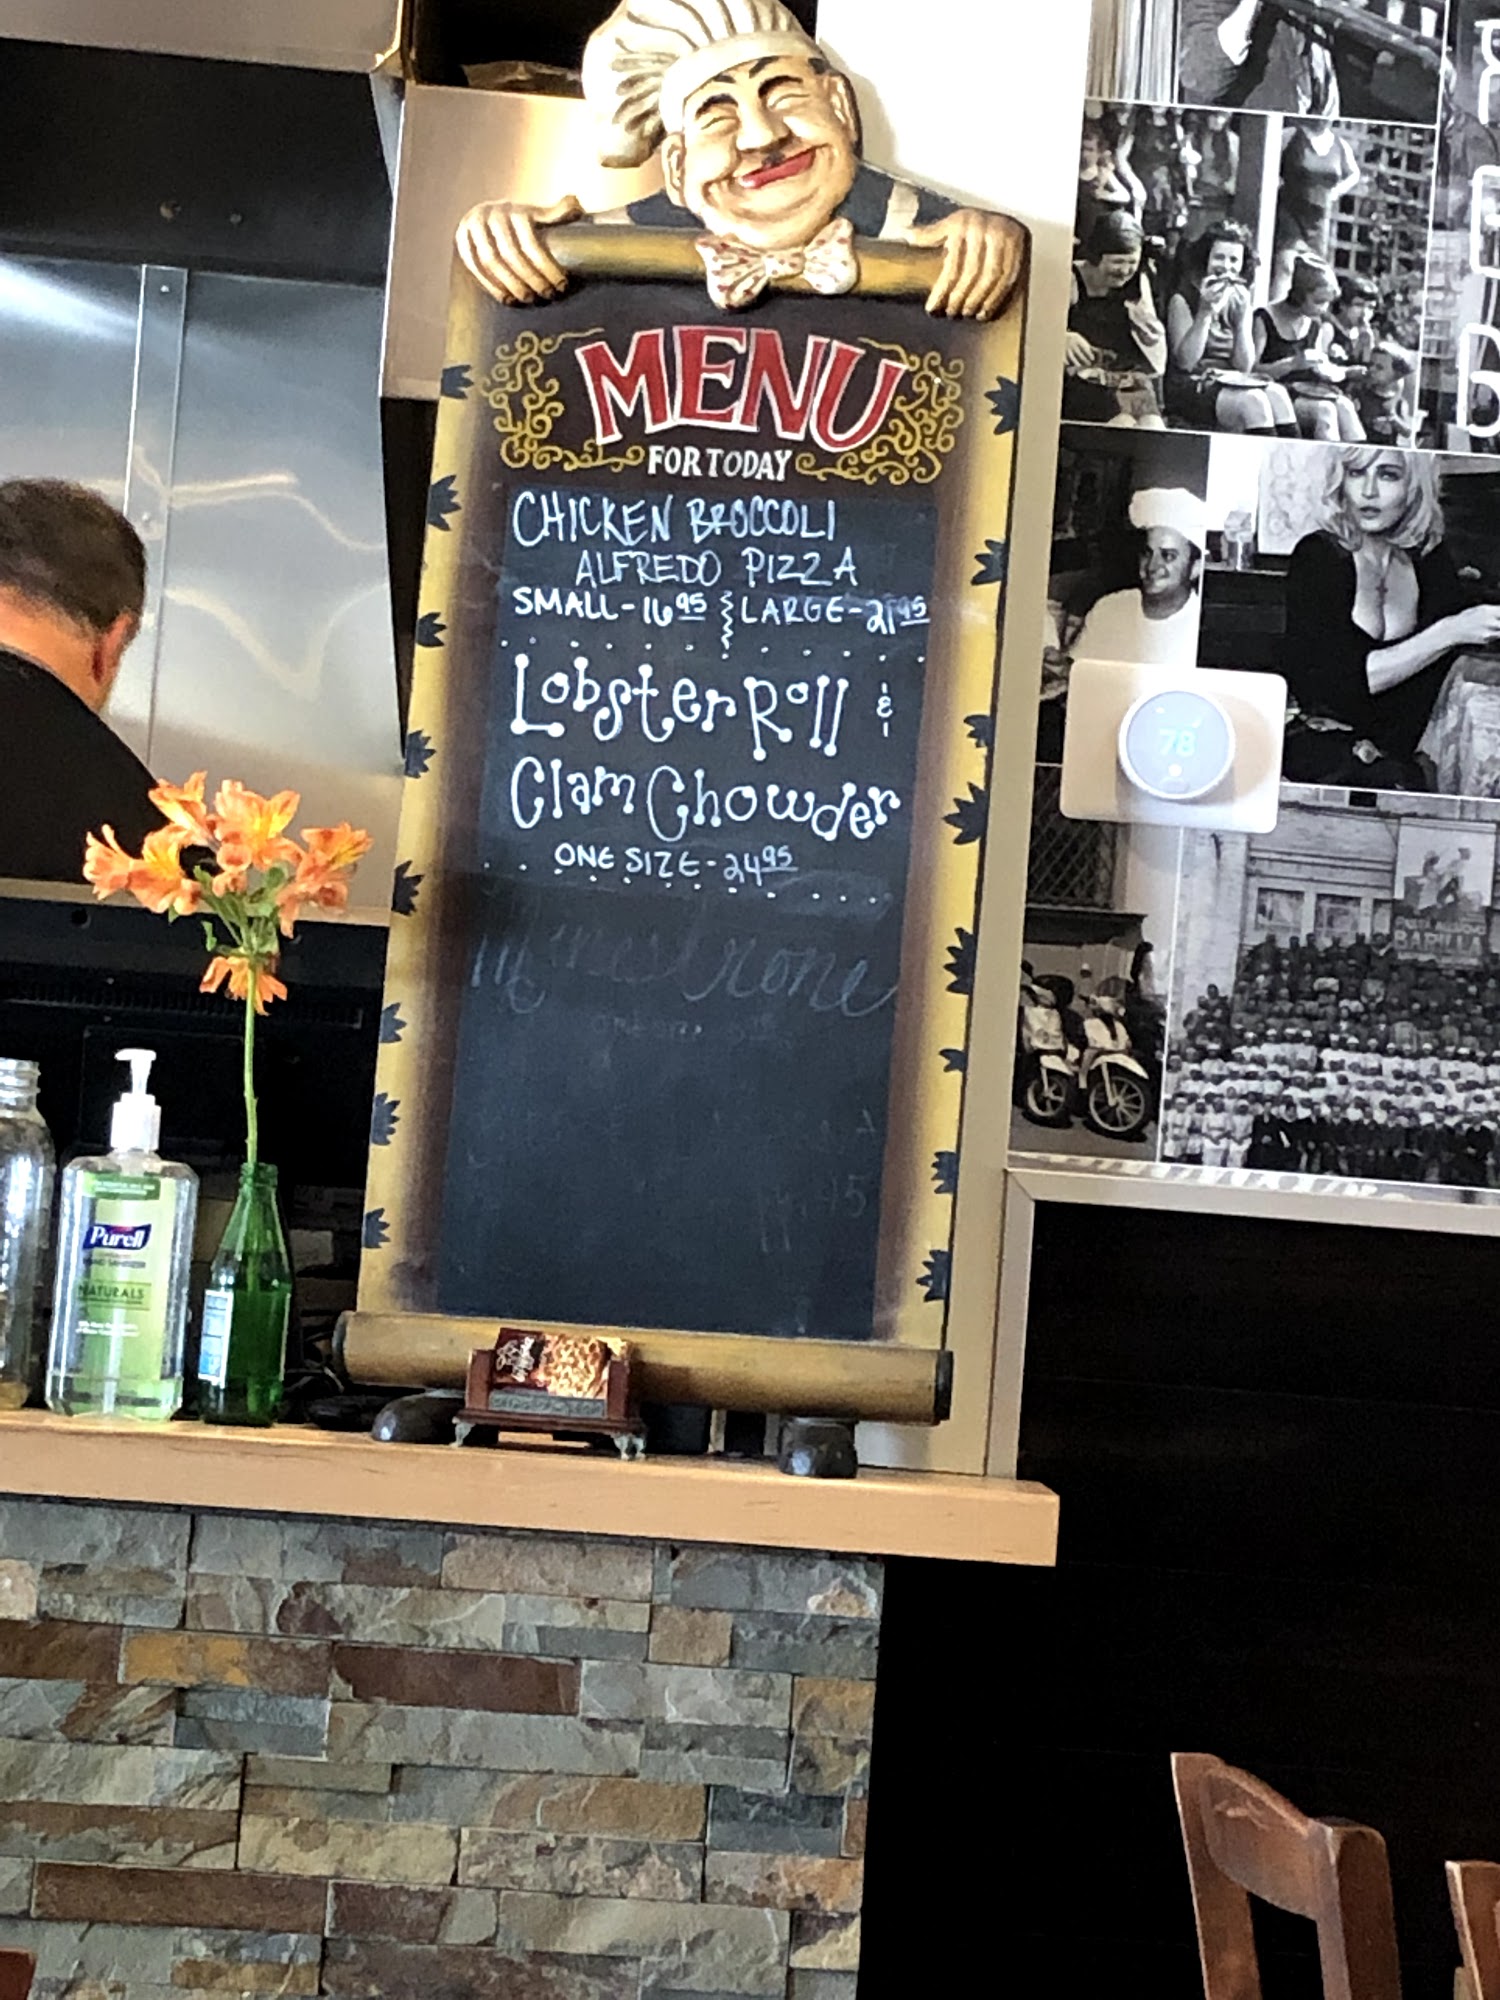 MENU
FOR TODAY
CHICKEN BROCCOLI
ALFREDO PIZZA
SMALL-16 95 LARGE-21 95
Lobster Roll &
Clam Chowder
ONE SIZE-24 95
Minestrone
Purell
NATURALS
78
BARILLA